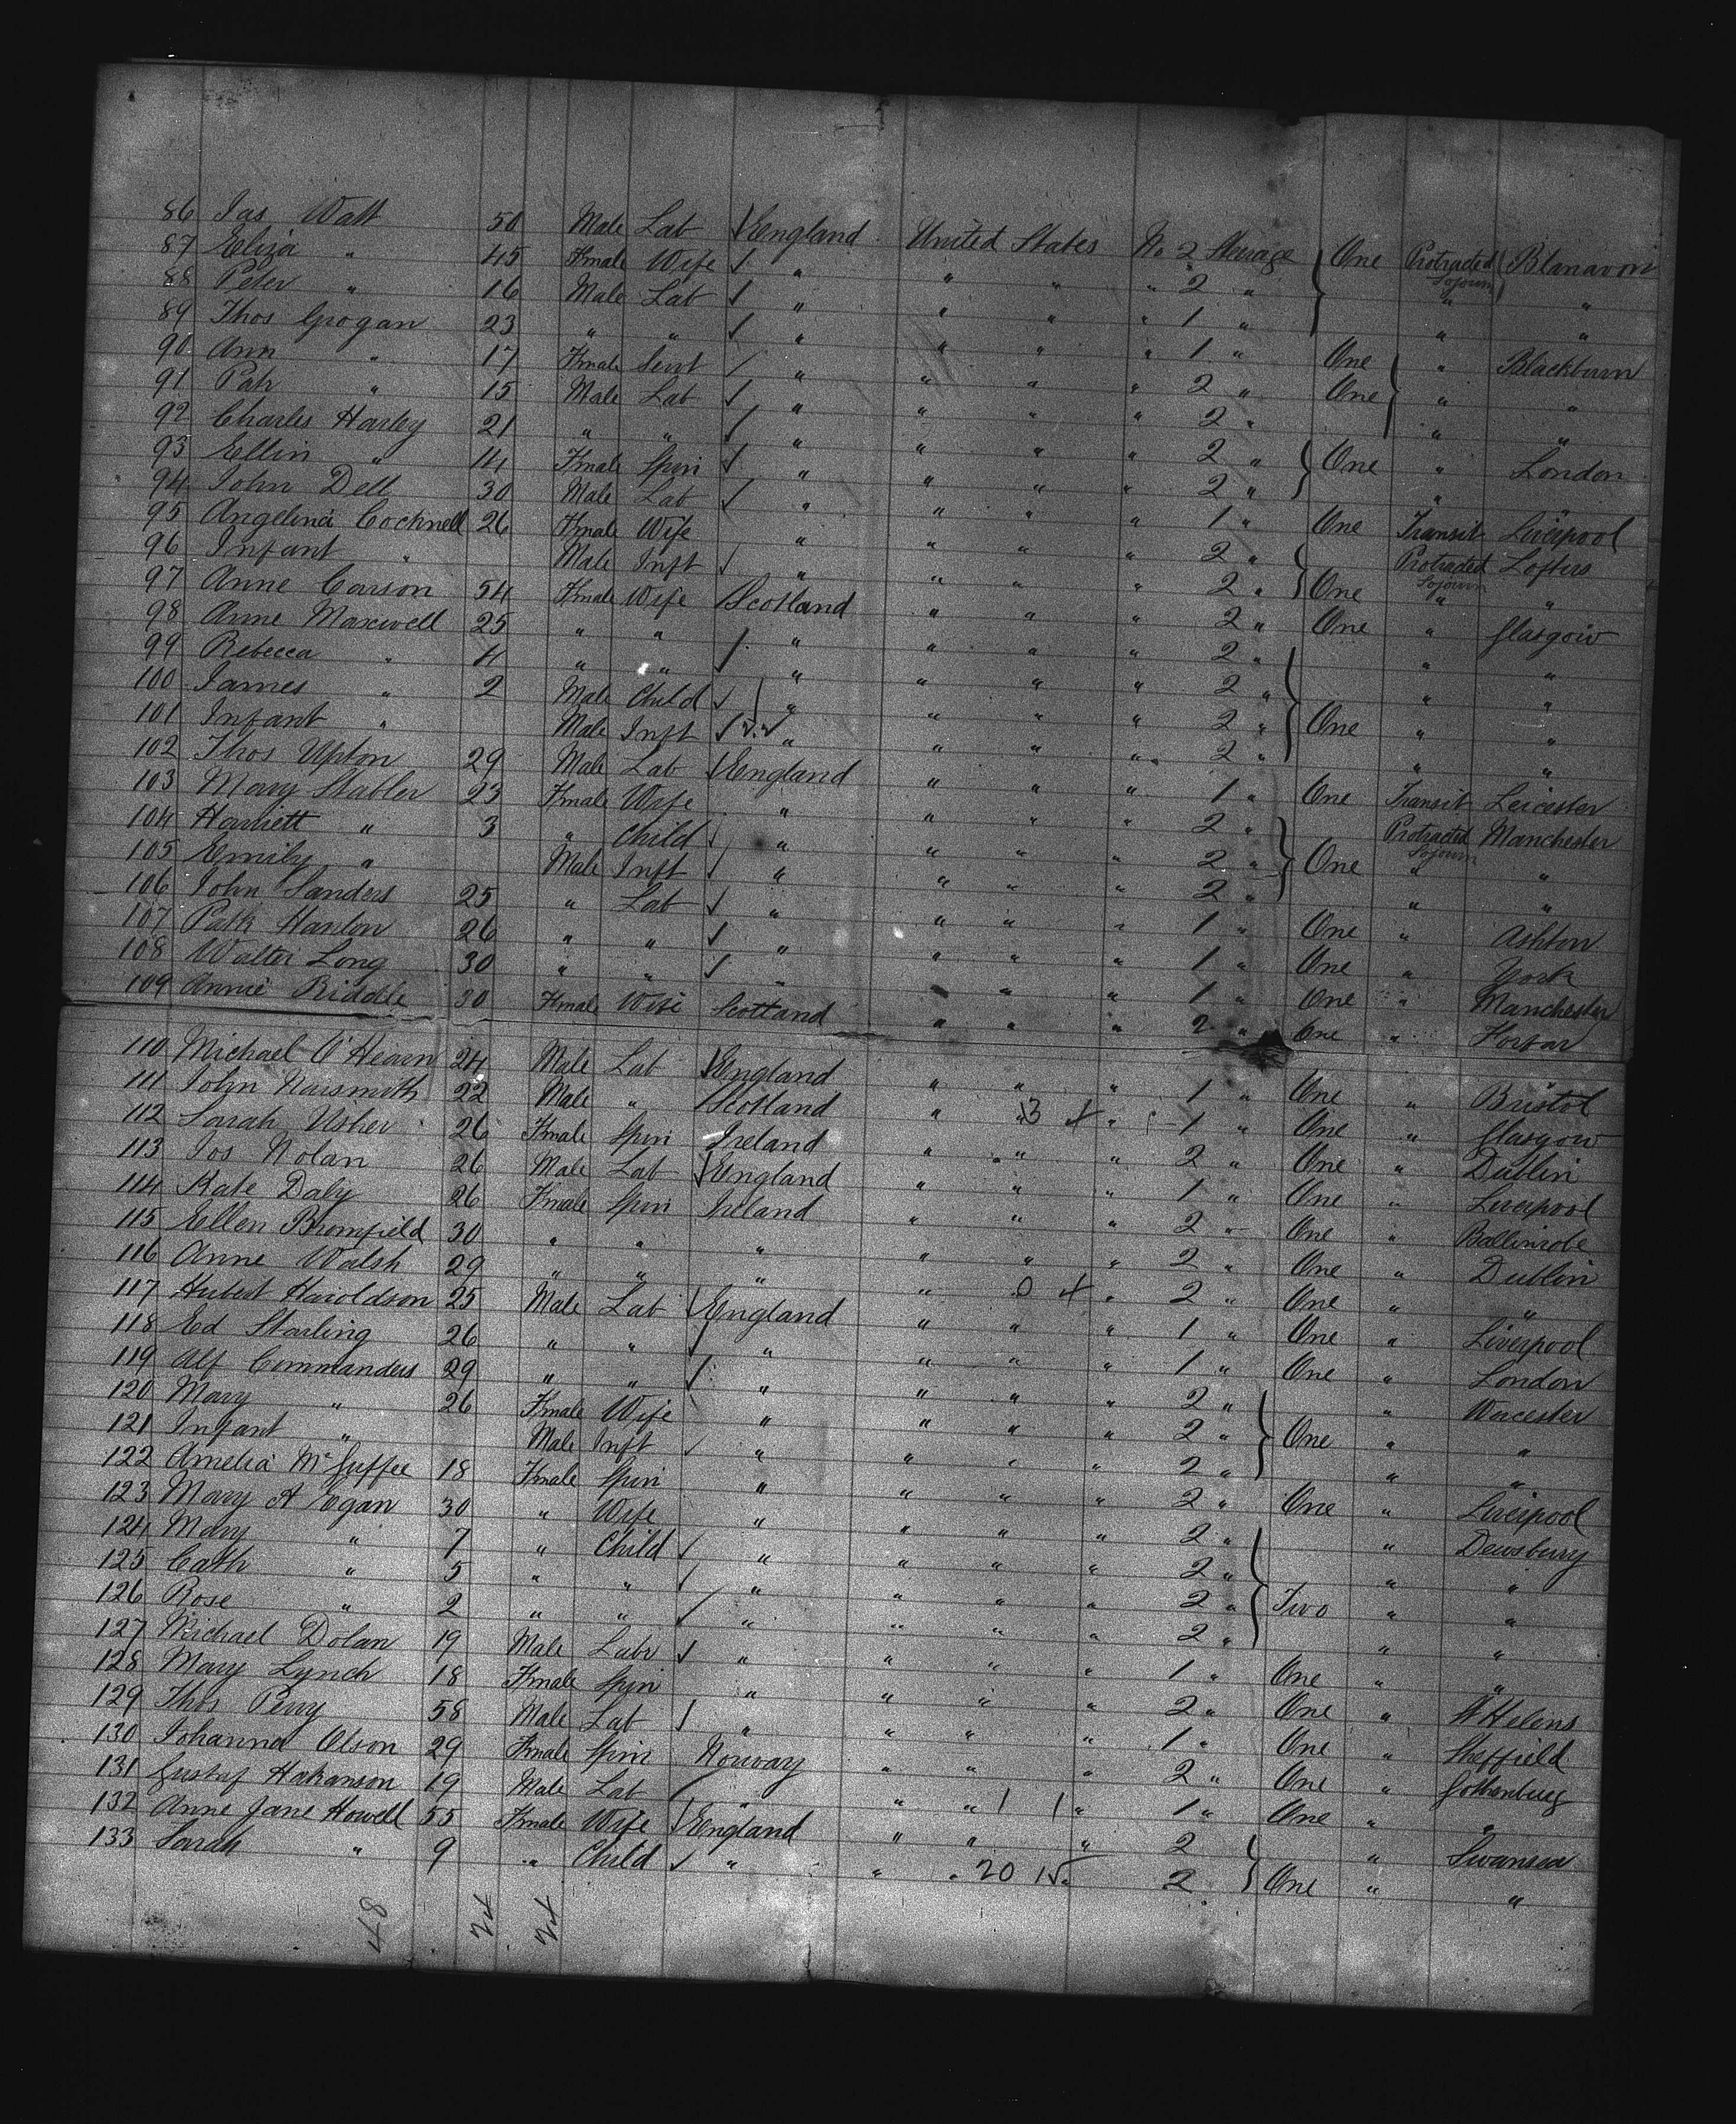 86 Jas Watt 50 Male Lab England United States No 2 Steerage One Protracted Sojourn Blanavon
87 Eliza " 45 Fmale Wife " " " " 2 " " "
88 Peter " 16 Male Lab " " " " 1 " " "
89 Thos Grogan 23 " " " " " " 1 " One " Blackburn
90 Ann " 17 Fmale Servt " " " " 2 " One " "
91 Patk " 15 Male Lab " " " " 2 " " "
92 Charles Harley 21 " " " " " " 2 " One " London
93 Ellin " 14 Fmale Spin " " " " 2 " "
94 John Dell 30 Male Lab " " " " 1 " One Transit Liverpool
95 Angelina Cocknell 26 Fmale Wife " " " " 2 " Protracted Sojourn Loftus
96 Infant " Male Inft " " " " 2 " One " "
97 Anne Carson 54 Fmale Wife Scotland " " " 2 " One " Glasgow
98 Anne Maxwell 25 " " " " " " 2 " " "
99 Rebecca " 4 " " " " " " 2 " " "
100 James " 2 Male Child " " " " 2 " One " "
101 Infant " Male Inft " " " " 2 " " "
102 Thos Upton 29 Male Lab England " " " 1 " One Transit Leicester
103 Mary Stabler 23 Fmale Wife " " " " 2 " Protracted Sojourn Manchester
104 Harriett " 3 " Child " " " " 2 " One " "
105 Emily " Male Inft " " " " 2 " " "
106 John Sanders 25 " Lab " " " " 1 " One " Ashton
107 Patk Hanlon 26 " " " " " " 1 " One " York
108 Walter Long 30 " " " " " " 1 " One " Manchester
109 Annie Riddle 30 Fmale Wife Scotland " " " 2 " One " Forfar
110 Michael O'Hearn 24 Male Lab England " " " 1 " One " Bristol
111 John Naismith 22 Male " Scotland " 3 " 1 " One " Glasgow
112 Sarah Usher 26 Fmale Spin Ireland " " " 2 " One " Dublin
113 Jos Nolan 26 Male Lab England " " " 1 " One " Liverpool
114 Kate Daly 26 Fmale Spin Ireland " " " 2 " One " Ballinrobe
115 Ellen Bromfield 30 " " " " " " 2 " One " Dublin
116 Anne Walsh 29 " " " " 0 " 2 " One " "
117 Hubert Haroldson 25 Male Lab England " " " 1 " One " Liverpool
118 Ed Starling 26 " " " " " " 1 " One " London
119 Alf Commanders 29 " " " " " " 2 " " Worcester
120 Mary " 26 Fmale Wife " " " " 2 " One " "
121 Infant " Male Inft " " " " 2 " " "
122 Amelia McGuffee 18 Fmale Spin " " " " 2 " One " Liverpool
123 Mary A Egan 30 " Wife " " " " 2 " " Dewsbury
124 Mary " 7 " Child " " " " 2 " " "
125 Cath " 5 " " " " " " 2 " Two " "
126 Rose " 2 " " " " " " 2 " " "
127 Michael Dolan 19 Male Labr " " " " 1 " One " "
128 Mary Lynch 18 Fmale Spin " " " " 2 " One " St Helens
129 Thos Perry 58 Male Lab " " " " 1 " One " Sheffield
130 Johanna Olson 29 Fmale Spin Norway " " " 2 " One " Gothenburg
131 Gustaf Hakanson 19 Male Lab " " " " 1 " One " "
132 Anne Jane Howell 55 Fmale Wife England " " " 2 " Swansea
133 Sarah " 9 " Child " " " 20 15 2 One " "
48 24 24